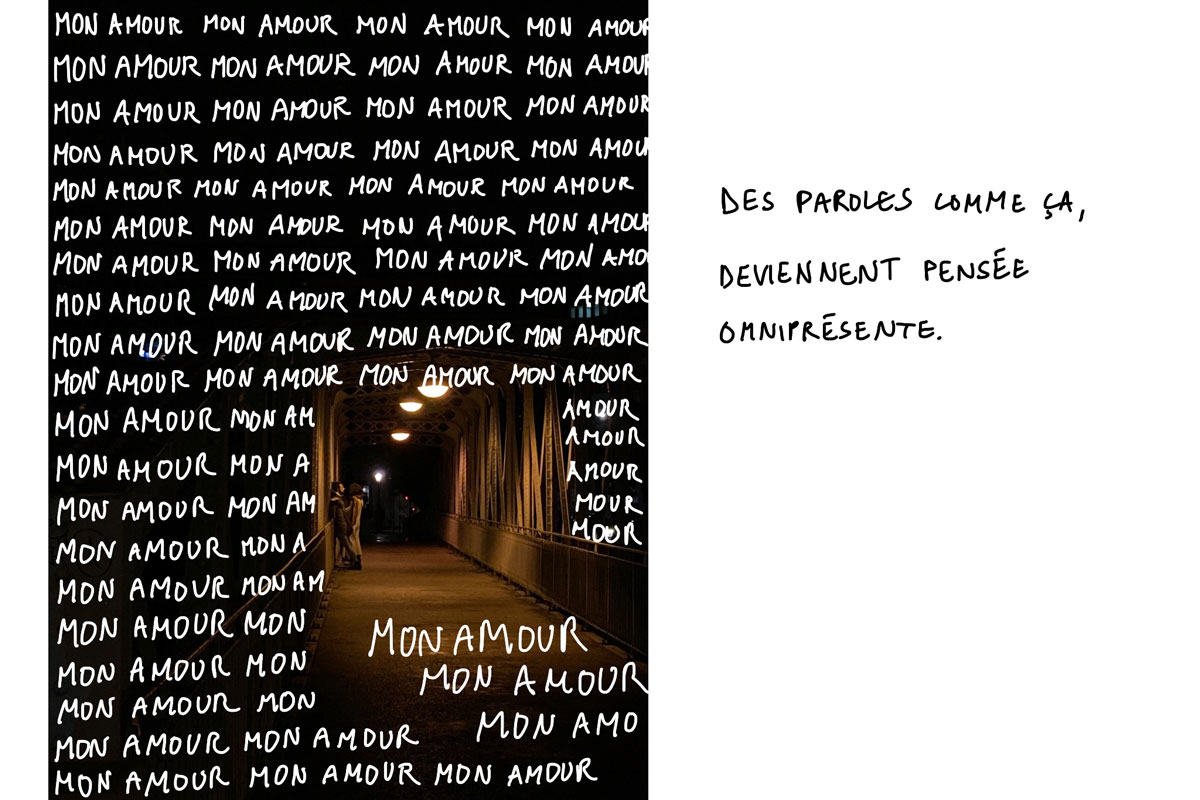 MON AMOUR MON AMOUR MON AMOUR MON AMOUR
MON AMOUR MON AMOUR MON AMOUR MON AMOUR
MON AMOUR MON AMOUR MON AMOUR MON AMOUR
MON AMOUR MON AMOUR MON AMOUR MON AMOU
MON AMOUR MON AMOUR MON AMOUR MON AMOUR
MON AMOUR MON AMOUR MON AMOUR MON AMOU
MON AMOUR MON AMOUR MON AMOUR MON AMO
MON AMOUR MON AMOUR MON AMOUR MON AMOUR
MON AMOUR MON AMOUR MON AMOUR MON AMOUR
MON AMOUR MON AMOUR MON AMOUR MON AMOUR
MON AMOUR MON AM
MON AMOUR MON A
MON AMOUR MON AM
MON AMOUR MON A
MON AMOUR MON AM
MON AMOUR MON
MON AMOUR MON
MON AMOUR MON
MON AMOUR MON AMOUR
MON AMOUR MON AMOUR MON AMOUR
AMOUR
AMOUR
AMOUR
MOUR
MOUR
MON AMOUR
MON AMOUR
MON AMO
DES PAROLES COMME ÇA,
DEVIENNENT PENSÉE
OMNIPRÉSENTE.